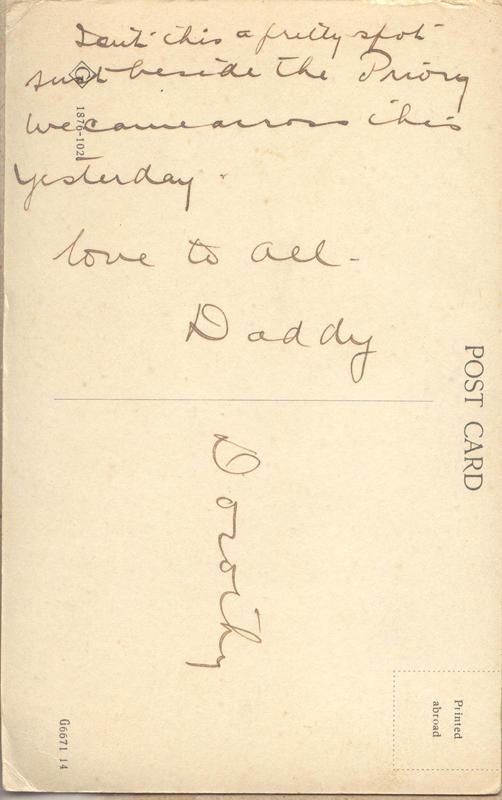 Isnt this a pretty spot
just beside the Priory
We came across this
yesterday.
love to all -
Daddy
Dorothy
POST CARD
Printed
abroad
1876-102
G6671 14